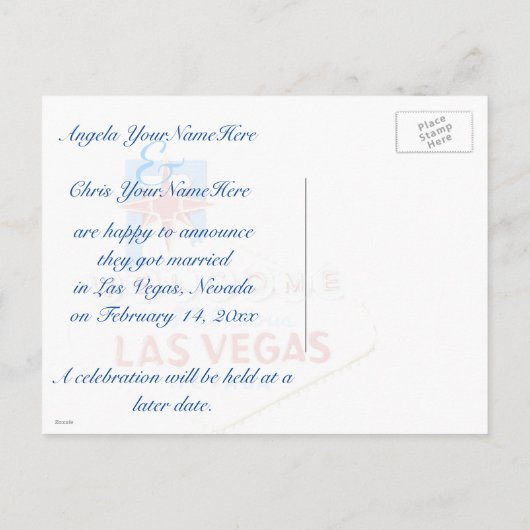 Angela YourNameHere
&
Chris YourNameHere
are happy to announce
they got married
in Las Vegas, Nevada
on February 14, 20xx
A celebration will be held at a
later date.
Place
Stamp
Here
WELCOME
LAS VEGAS
Zazzle